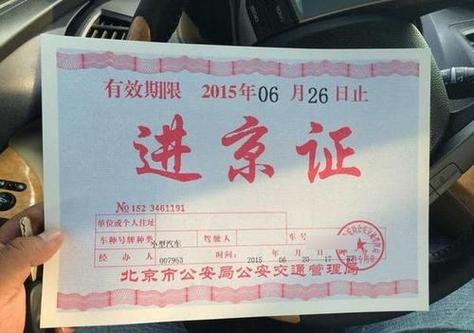 有效期限 2015年06月26日止
进京证
No 152 3461191
单位或个人住址
车种号牌种类 小型汽车 驾驶人 车号
经办人 007953 时间: 2015 06 20 17
北京市公安局公安交通管理局